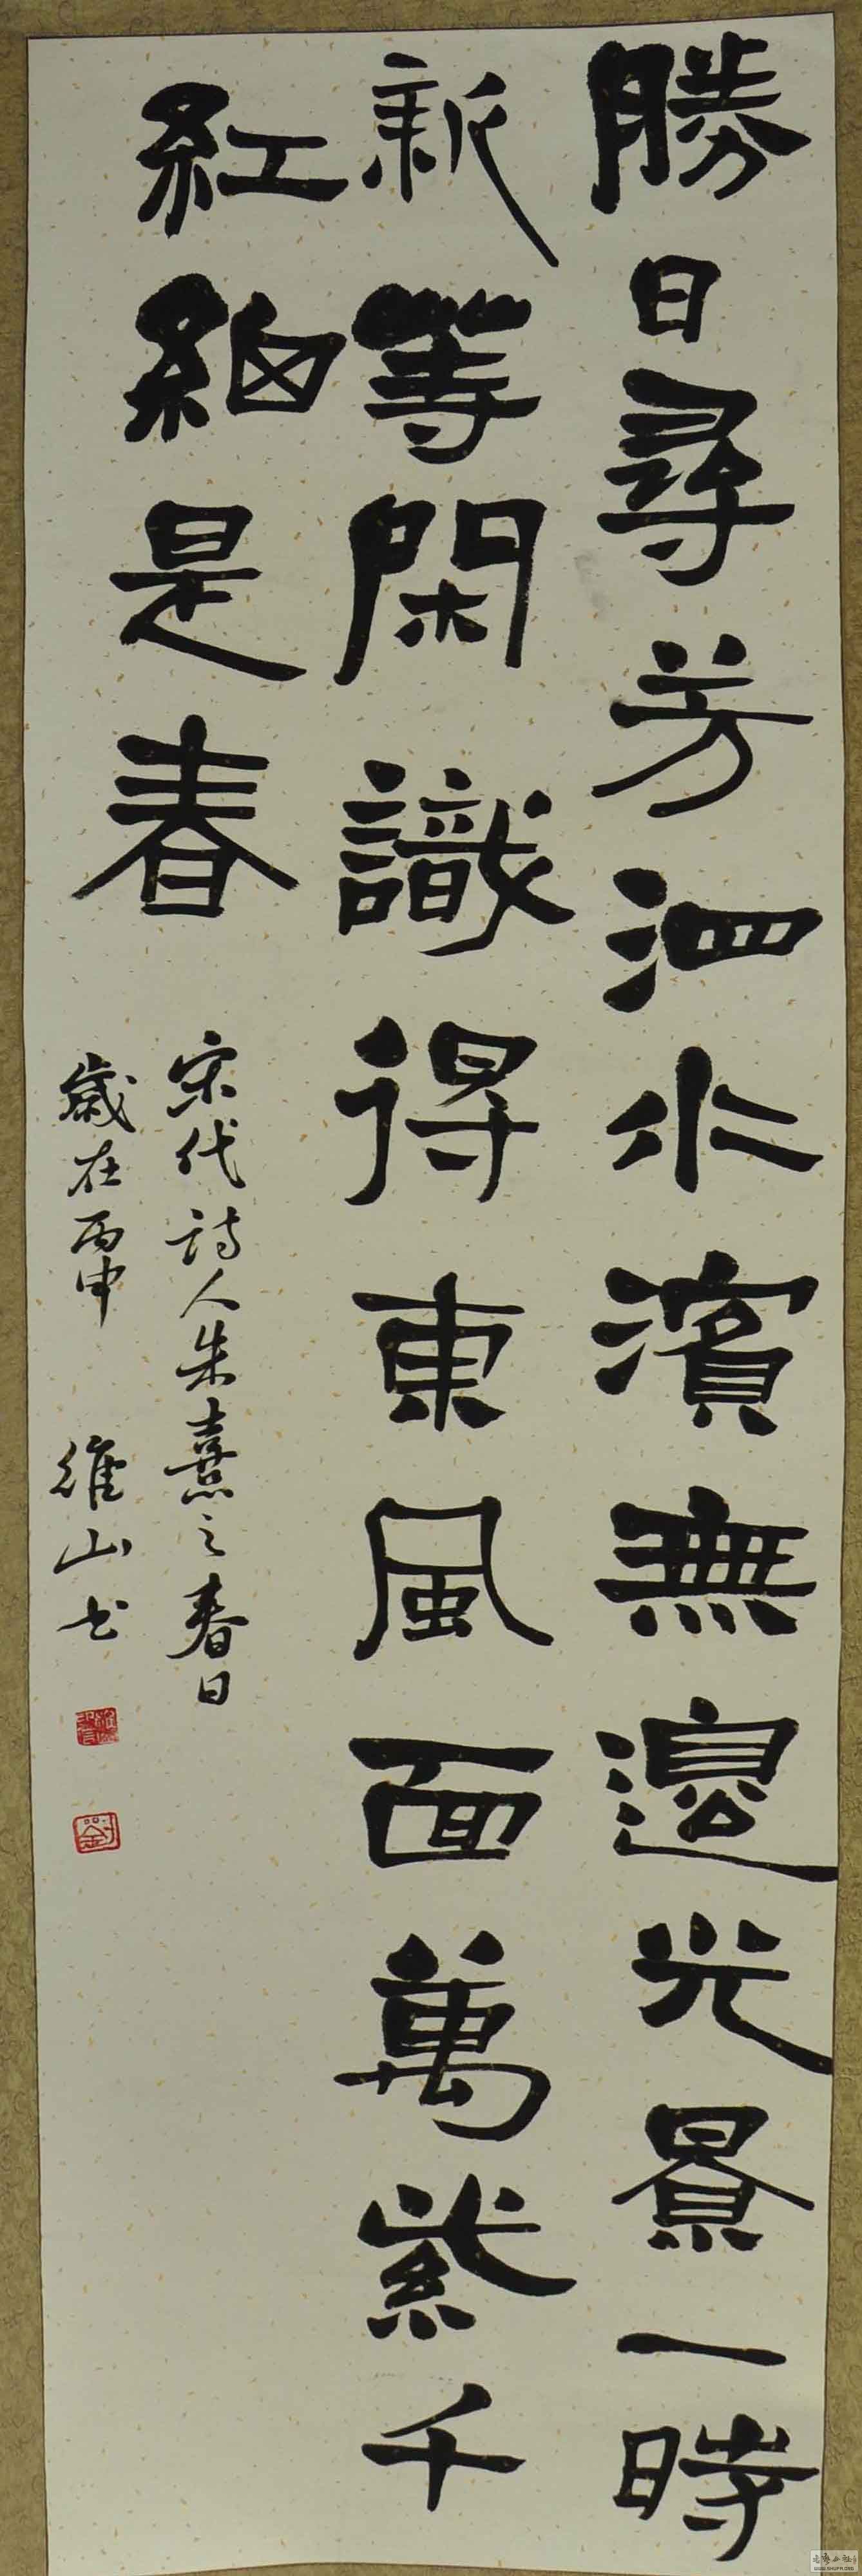 勝日尋芳泗水濱無邊光景一時
新等閑識得東風面萬紫千
紅緫是春
宋代詩人朱熹之春日
歲在丙申 維山书
WWW.SHUFR.ORG